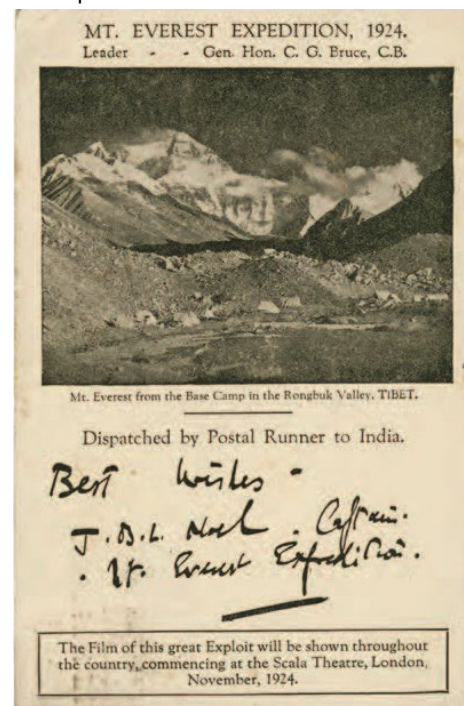 MT. EVEREST EXPEDITION, 1924.
Leader - - Gen. Hon. C. G. Bruce, C.B.
Mt. Everest from the Base Camp in the Rongbuk Valley, TIBET.
Dispatched by Postal Runner to India.
Best Wishes -
J.B.L. Noel. Captain.
. Mt. Everest Expedition.
The Film of this great Exploit will be shown throughout
the country, commencing at the Scala Theatre, London,
November, 1924.